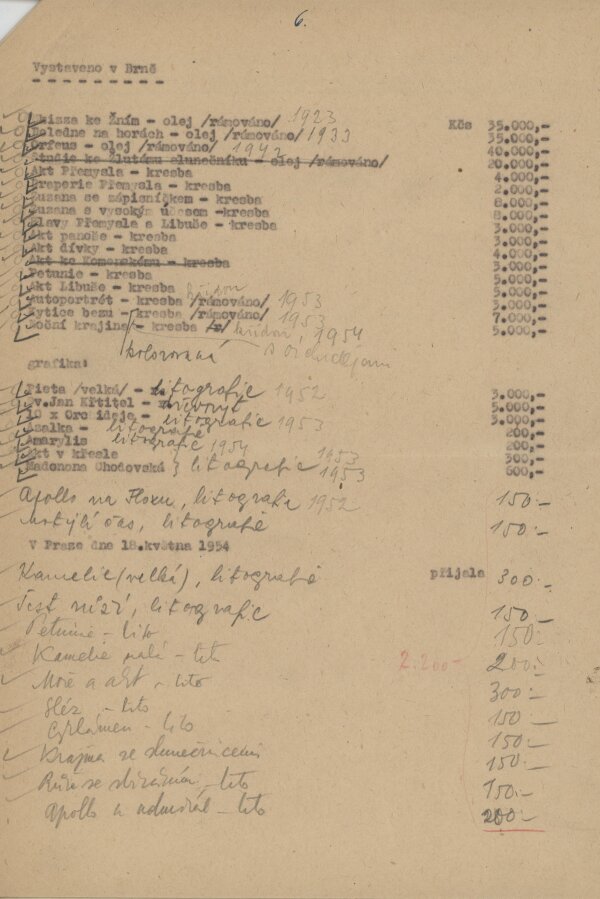 6.
Vystaveno v Brně
ke žním - olej /rámováno/ 1923 Kčs 35.000,-
Poledne na horách - olej /rámováno/ 1933 35.000,-
Orfeus - olej /rámováno/ 1942 40.000,-
Studie ke žlutému slunečníku - olej /rámováno/ 20.000,-
Akt Přemysla - kresba 4.000,-
Draperie Přemysla - kresba 2.000,-
Zuzana se zápisníčkem - kresba 8.000,-
Zuzana s vysokým účesem -kresba 8.000,-
Hlavy Přemysla a Libuše - kresba 3.000,-
Akt panoše - kresba 3.000,-
Akt dívky - kresba 4.000,-
Akt ke Komenskému - kresba 3.000,-
Petunie - kresba 5.000,-
Akt Libuše - kresba 5.000,-
Autoportrét - kresba /rámováno/ 1953 3.000,-
Kytice bezu - kresba /rámováno/ 1953 7.000,-
Noční krajina - kresba 1954 5.000,-
kolorovaná s orchidejemi
grafika:
Pieta /velká/ - litografie 1952 3.000,-
Sv.Jan Křtitel - dřevoryt 5.000,-
10 x Orchideje - litografie 1953 3.000,-
Azalka - litografie 200,-
Amarylis litografie 1954 200,-
Akt v křesle 1953 300,-
Madonna Chodovská } litografie 1953 600,-
Apollo na Floxu, litografie 1952 150.-
motýlí čas, litografie 150.-
V Praze dne 18.května 1954
Kamelie (velká), litografie přijala 300.-
Šest růží, litografie 150.-
Petunie - lito 150.-
Kamelie malá - lito 2.200.- 200.-
Moře a akt - lito 300.-
Sléz - lito 150.-
Cyklámen - lito 150.-
Krajina se slunečnicemi 150.-
Růže se - lito 150.-
Apollo a admirál - lito 200.-